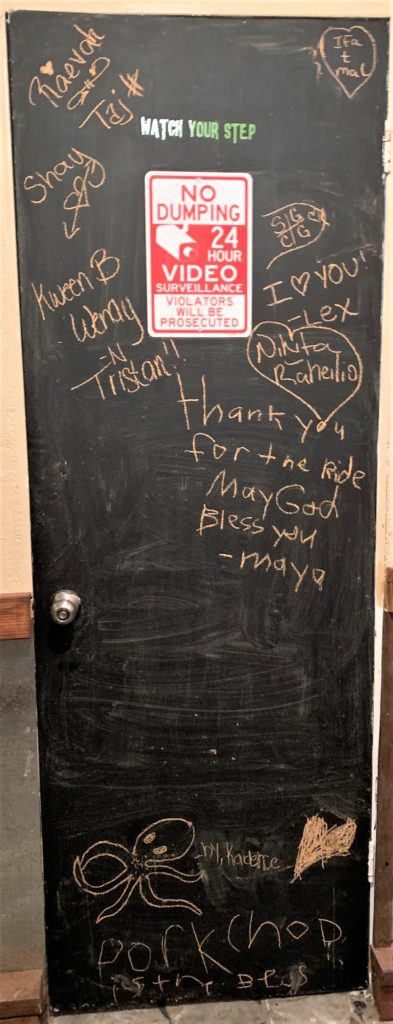 Raevah
Taj#
IFa
t
mal
WATCH YOUR STEP
Shay
NO
DUMPING
24
HOUR
VIDEO
SURVEILLANCE
VIOLATORS
WILL BE
PROSECUTED
I ♥ YOU!
-Lex
Kween B
Wendy
-N
Tristan!!
Nikita
thank you
for the Ride
May God
Bless you
-maya
by, Kadence
porkchop
is the